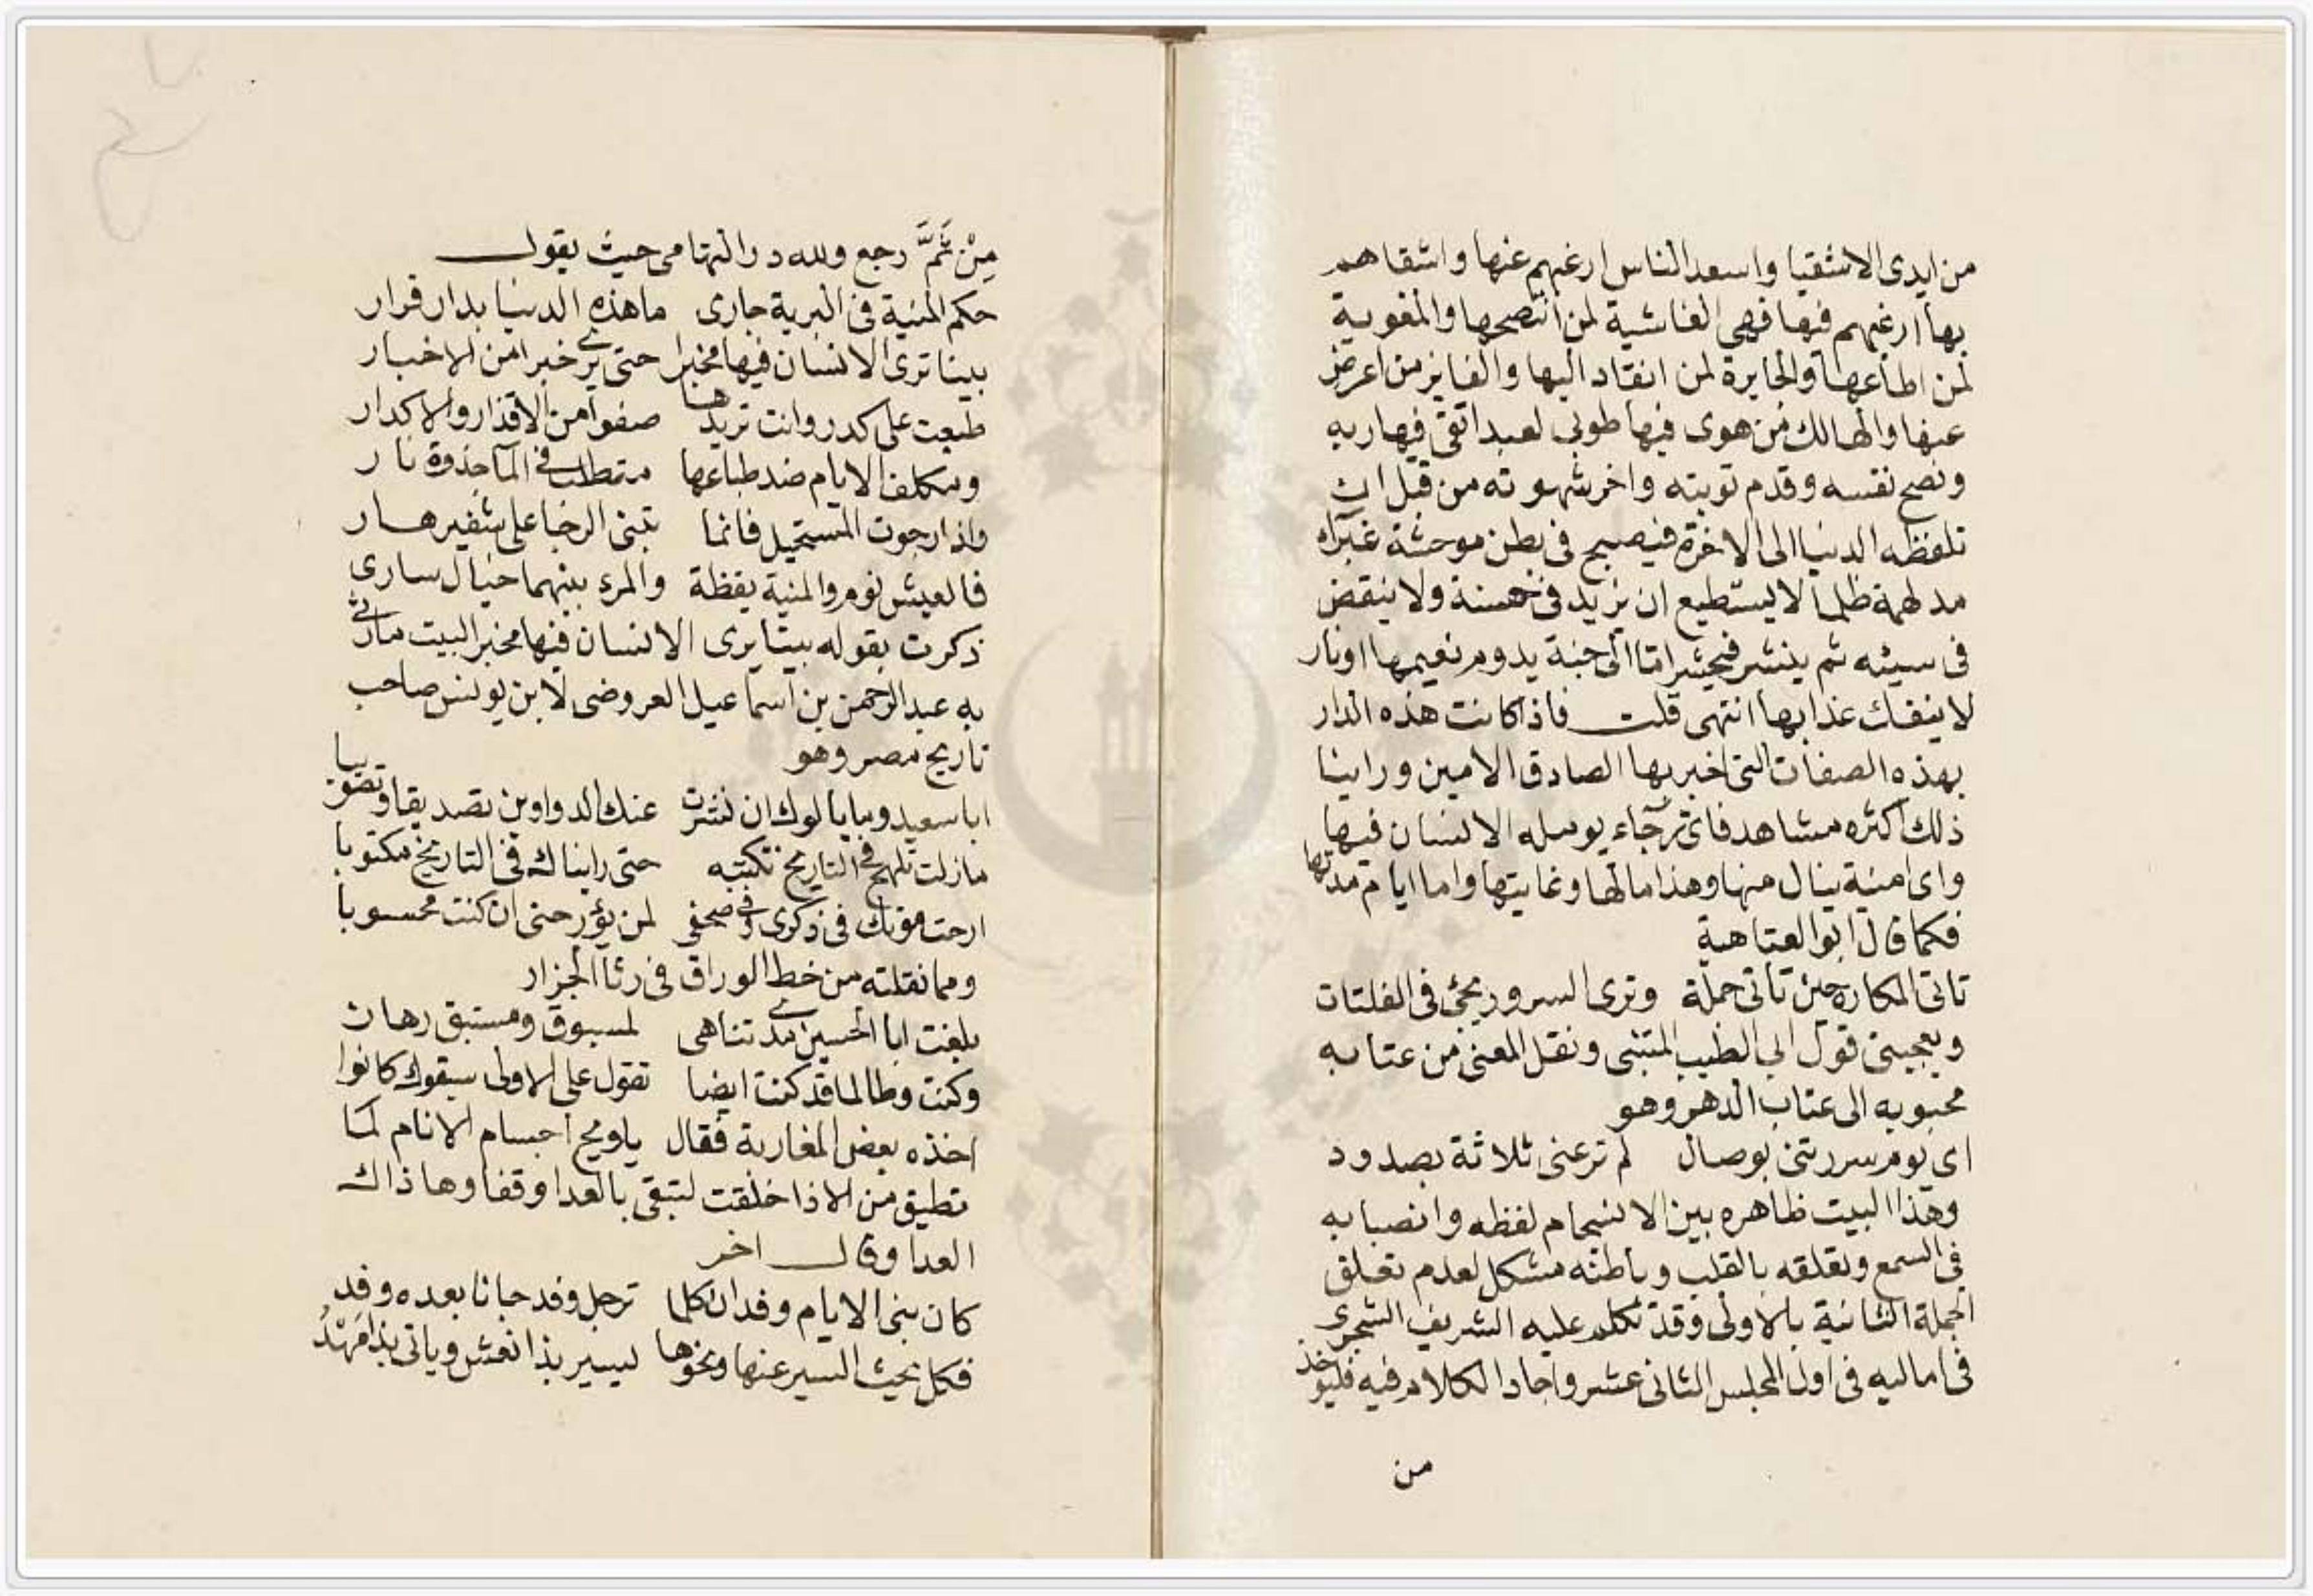 من ايدى الاشقيا واسعد الناس ارغبهم عنها واشقاهم
بها ارغبهم فيها فهى الغاشية لمن انتصحها والمغوية
لمن اطاعها والجايرة لمن انقاد اليها والفايز من اعرض
عنها والهالك من هوى فيها طوبى لعبد اتقى فيها ربه
ونصح نفسه وقدم توبته واخر شهوته من قبل ان
تلفظه الدنيا الى الاخرة فيصبح فى بطن موحشة غبرآء
مدلهمة ظلما لا يستطيع ان يزيد فى حسنة ولا ينقض
فى سيئه ثم ينشر فيحشر امّا الى جنة يدوم نعيمها او نار
لا ينفك عذابها انتهى قلت فاذا كانت هذه الدار
بهذه الصفات التى اخبر بها الصادق الامين وراينا
ذلك اكثره مشاهد فاى رجآء يومله الانسان فيها
واى امنية ينال منها وهذا مالها وغايتها واما ايام مدتها
فكما قال ابو العتاهية
تاتى المكاره حين تاتى جملة وترى السرور يجئ فى الفلتات
ويعجبنى قول ابى الطيب المتنبى ونقل المعنى من عتابه
محبوبه الى عتاب الدهر وهو
اى يوم سررتنى بوصال لم ترعنى ثلاثة بصدود
وهذا البيت ظاهره بين الانسجام لفظه وانصبابه
فى السمع وتعلقه بالقلب وباطنه مشكل لعدم تعلق
الجملة الثانية بالاولى وقد تكلم عليه الشريف الشجرى
فى اماليه فى اول المجلس الثانى عشر واجاد الكلام فيه فليوخذ
من
مِنْ ثَمَّ رجع ولله در التهامى حيث يقول
حكم المنية فى البرية جارى ما هذه الدنيا بدار قرار
بينا ترى الانسان فيها مخبرا حتى يرى خبرا من الاخبار
طبعت على كدر وانت تريدها صفوا من الاقذار والاكدار
ومكلف الايام ضد طباعها متطلب فى المآ جذوة نار
واذا رجوت المستحيل فانما تبنى الرخبا على شفير هار
فالعيش نوم والمنية يقظة والمرء بينهما خيال سارى
ذكرت بقوله بيتا يرى الانسان فيها مخبر البيت مارثى
به عبد الرحمن بن اسماعيل العروضى لابن يونس صاحب
تاريخ مصر وهو
ابا سعيد وما يالوك ان نشرت عنك الدواوين تصديقا وتصويبا
مازلت تلهج فى التاريخ تكتبه حتى رايناك فى التاريخ مكتوبا
ارخت موتك فى ذكرى وفى صحفى لمن يؤرخنى ان كنت محسوبا
ومما نقلته من خط الوراق فى رثآ الجزار
بلغت ابا الحسين مدى تناهى لمسبوق ومستبق رهان
وكنت وطالما قد كنت ايضا تقول على الاولى سبقوك كانوا
اخذه بعض المغاربة فقال ياويح اجسام الانام لما
تطيق من الاذا خلقت لتبقى بالغدا وقفا وها ذاك
الغدا وقال اخر
كان بنى الايام وفدان كلما ترحل وفد جانا بعده وفد
فكل يحث السير عنها ونحوها ليسير بذا نعش وياتى بذا مَهْدُ